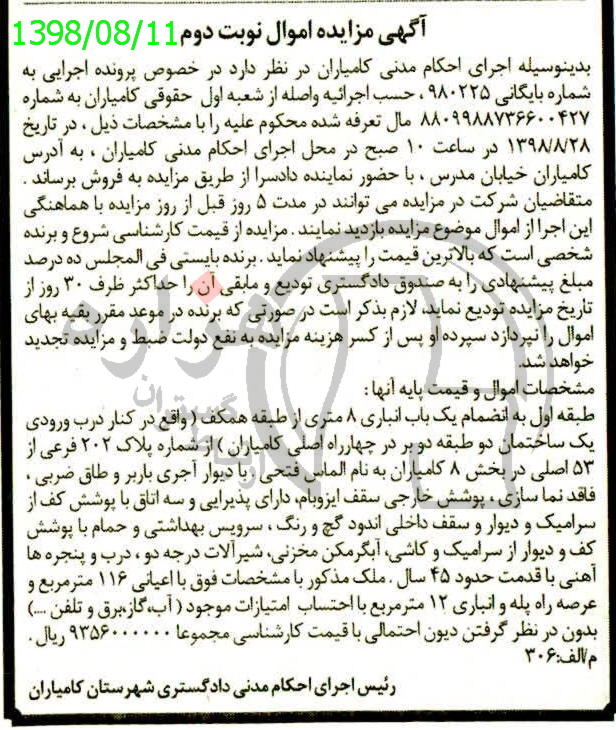 1398/08/11
آگهی مزایده اموال نوبت دوم
بدینوسیله اجرای احکام مدنی کامیاران در نظر دارد در خصوص پرونده اجرایی به
شماره بایگانی ۹۸۰۲۲۵ ، حسب اجرائیه واصله از شعبه اول حقوقی کامیاران به شماره
۸۸۰۹۹۸۸۷۳۶۶۰۰۴۲۷ مال تعرفه شده محکوم علیه را با مشخصات ذیل ، در تاریخ
۱۳۹۸/۸/۲۸ در ساعت ۱۰ صبح در محل اجرای احکام مدنی کامیاران ، به آدرس
کامیاران خیابان مدرس ، با حضور نماینده دادسرا از طریق مزایده به فروش برساند .
متقاضیان شرکت در مزایده می توانند در مدت ۵ روز قبل از روز مزایده با هماهنگی
این اجرا از اموال موضوع مزایده بازدید نمایند . مزایده از قیمت کارشناسی شروع و برنده
شخصی است که بالاترین قیمت را پیشنهاد نماید . برنده بایستی فی المجلس ده درصد
مبلغ پیشنهادی را به صندوق دادگستری تودیع و مابقی آن را حداکثر ظرف ۳۰ روز از
تاریخ مزایده تودیع نماید، لازم بذکر است در صورتی که برنده در موعد مقرر بقیه بهای
اموال را نپردازد سپرده او پس از کسر هزینه مزایده به نفع دولت ضبط و مزایده تجدید
خواهد شد.
مشخصات اموال و قیمت پایه آنها :
طبقه اول به انضمام یک باب انباری ۸ متری از طبقه همکف ( واقع در کنار درب ورودی
یک ساختمان دو طبقه دو بر در چهارراه اصلی کامیاران ) از شماره پلاک ۲۰۲ فرعی از
۵۳ اصلی در بخش ۸ کامیاران به نام الماس فتحی با دیوار آجری باربر و طاق ضربی ،
فاقد نما سازی ، پوشش خارجی سقف ایزوبام، دارای پذیرایی و سه اتاق با پوشش کف از
سرامیک و دیوار و سقف داخلی اندود گچ و رنگ ، سرویس بهداشتی و حمام با پوشش
کف و دیوار از سرامیک و کاشی، آبگرمکن مخزنی، شیرآلات درجه دو ، درب و پنجره ها
آهنی با قدمت حدود ۴۵ سال . ملک مذکور با مشخصات فوق با اعیانی ۱۱۶ مترمربع و
عرصه راه پله و انباری ۱۲ مترمربع با احتساب امتیازات موجود ( آب،گاز،برق و تلفن ...)
بدون در نظر گرفتن دیون احتمالی با قیمت کارشناسی مجموعا ۹۳۵۶۰۰۰۰۰۰ ریال .
م/الف:۳۰۶
رئیس اجرای احکام مدنی دادگستری شهرستان کامیاران
هزاره